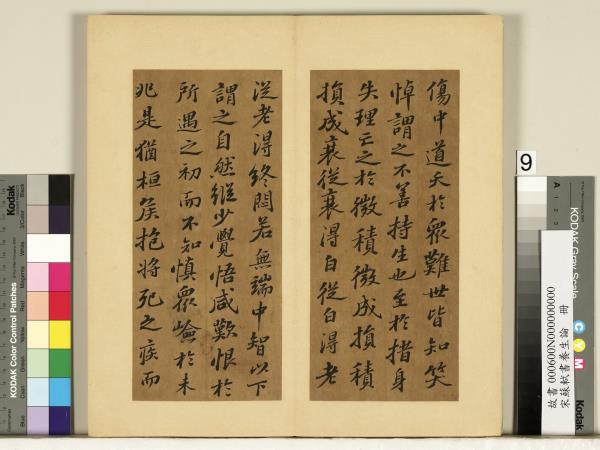 傷中道夭於眾難世皆知笑
悼謂之不善持生也至於措身
失理亡之於微積微成損積
損成衰從衰得白從白得老
從老得終悶若無端中智以下
謂之自然縱少覺悟咸歎恨於
所遇之初而不知慎眾嶮於未
兆是猶桓侯抱將死之疾而
9
KODAK Gray Scale
A 1 2 3
C Y M
Kodak
故書 000600N000000000
宋蘇軾書養生論 冊
Kodak
KODAK Color Control Patches
Black
3/Color
White
Magenta
Red
Yellow
Green
Cyan
Blue